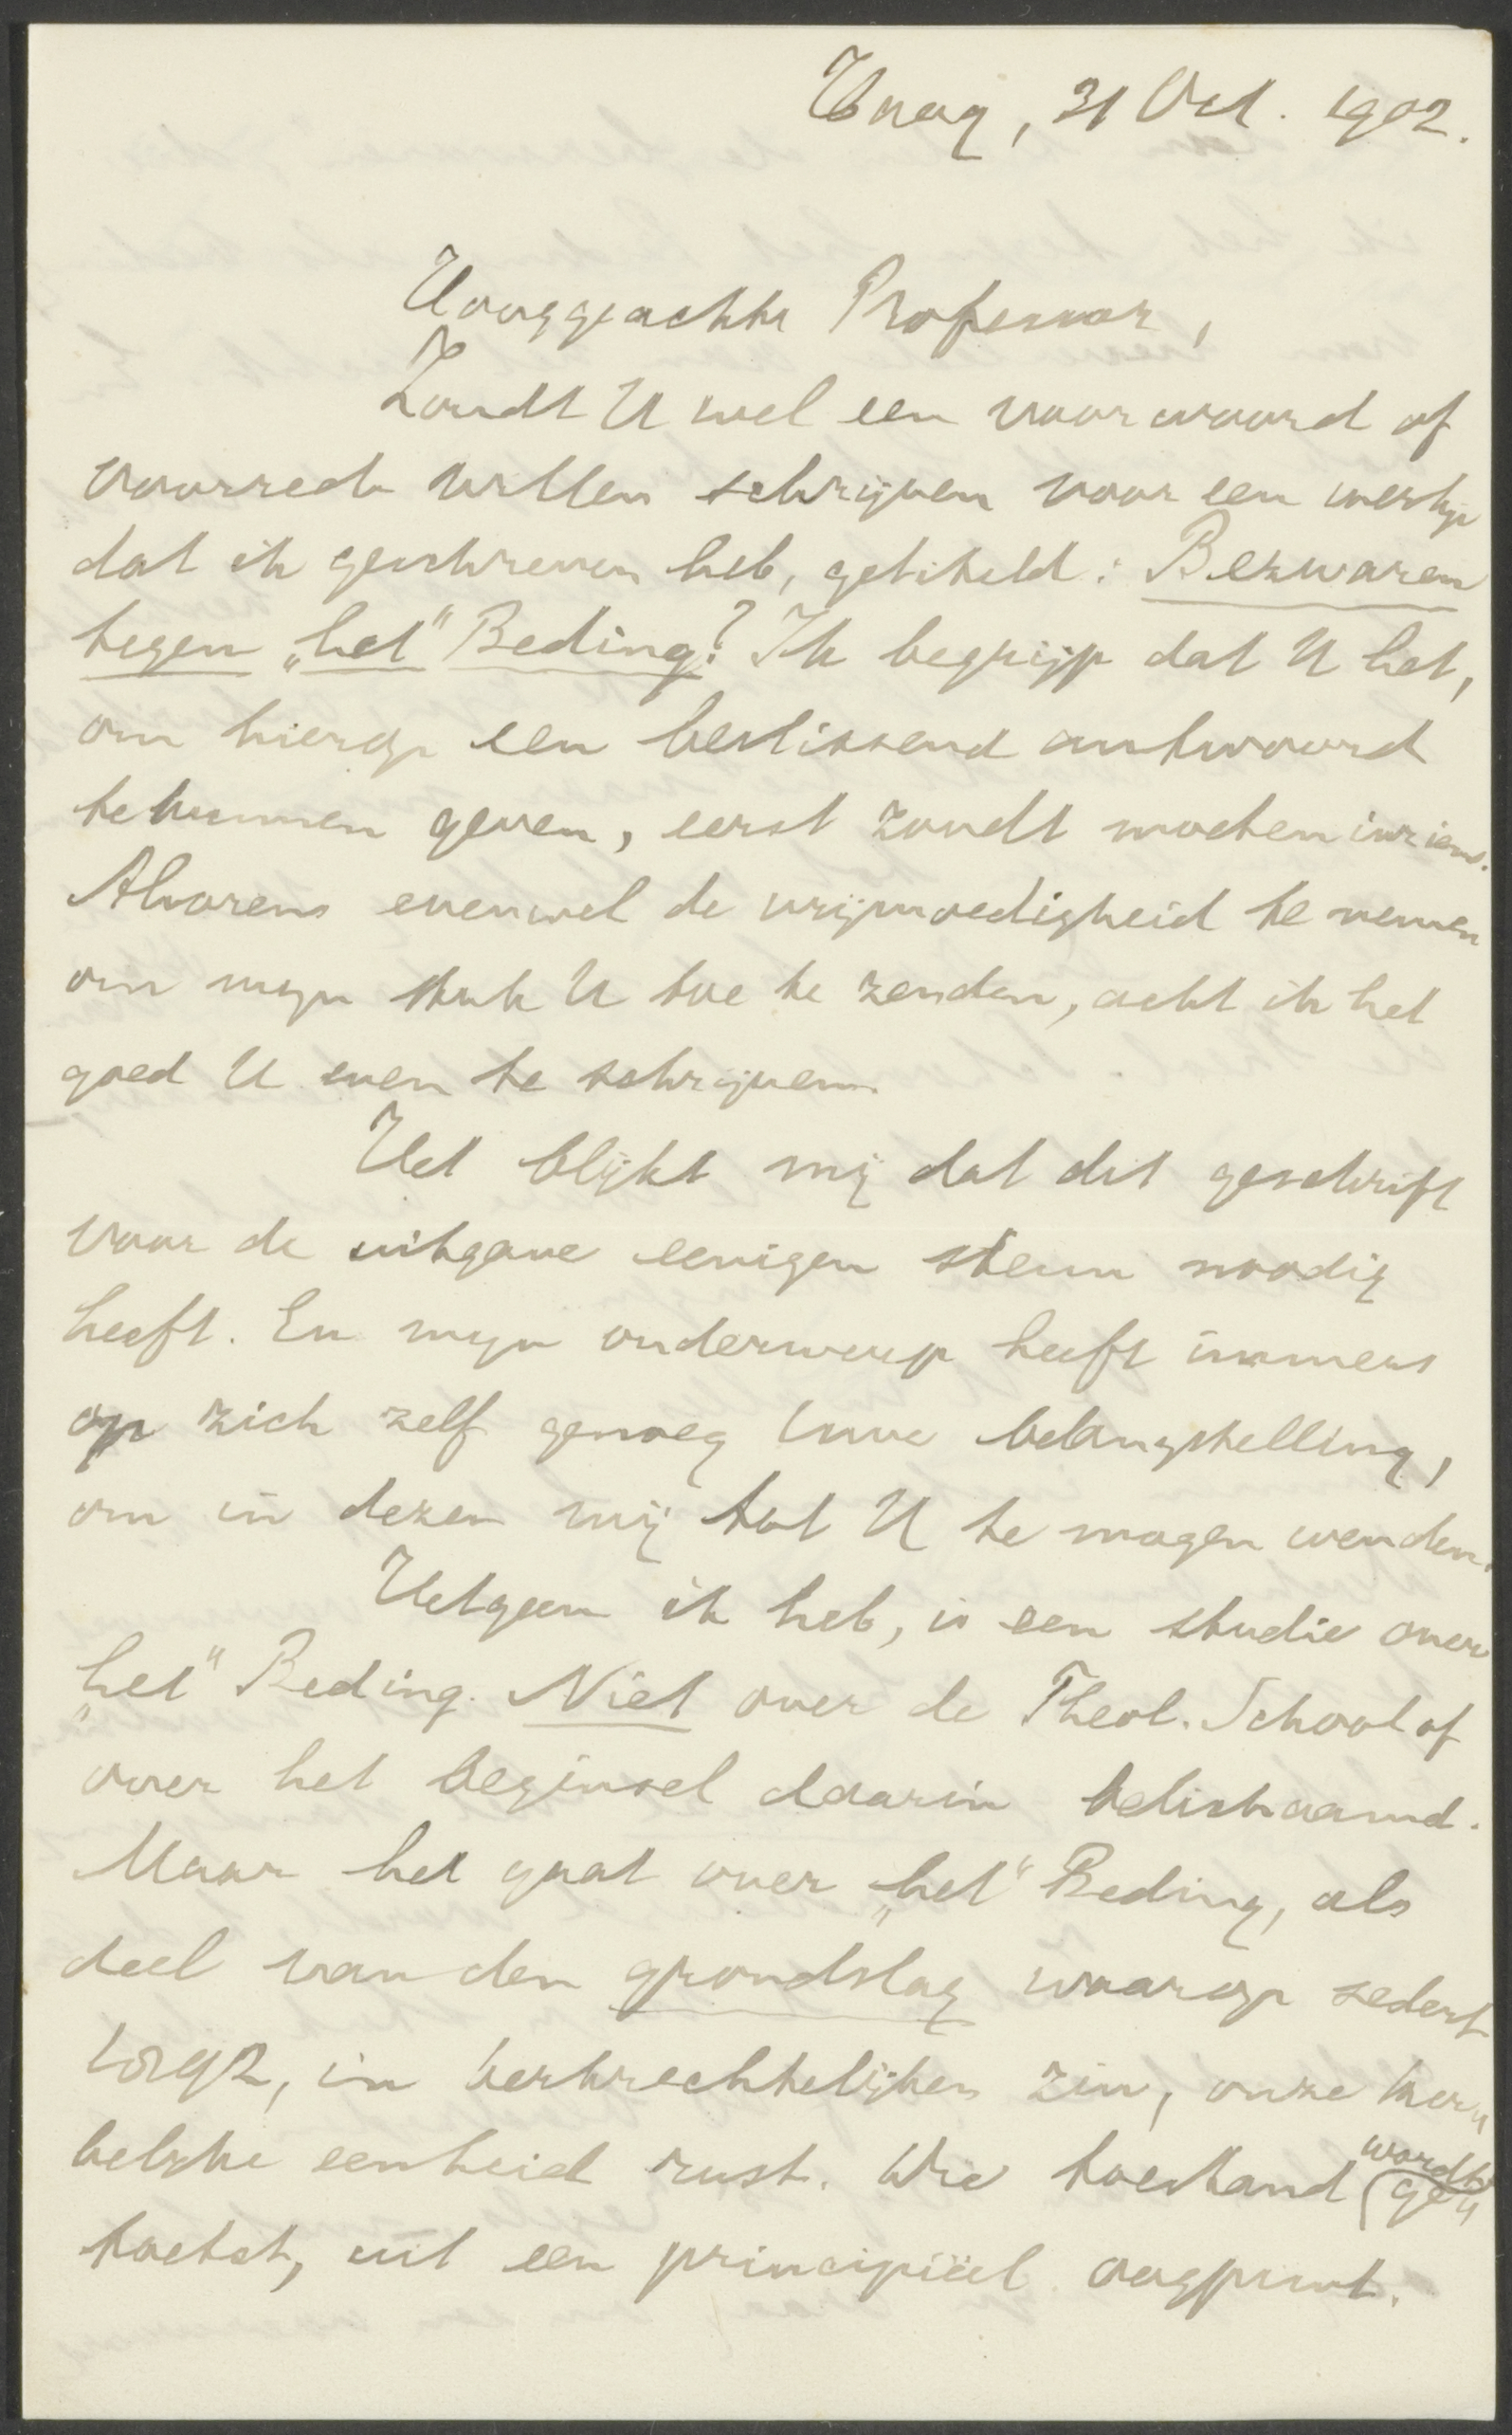 Haag, 31 Oct. 1902.
Hooggeachte Professor,
Zoudt U wel een voorwoord of
voorrede willen schrijven voor een werkje
dat ik geschreven heb, getiteld: Bezwaren
tegen „het" Beding? Ik begrijp dat U het,
om hierop een beslissend antwoord
te kunnen geven, eerst zoudt moeten inzien.
Alvorens evenwel de vrijmoedigheid te nemen
om mijn stuk U toe te zenden, acht ik het
goed U even te schrijven.
Het blijkt mij dat dit geschrift
voor de uitgave eenigen steun noodig
heeft. En mijn onderwerp heeft immers
op zich zelf genoeg Uwe belangstelling,
om in dezen mij tot U te mogen wenden.
Hetgeen ik heb, is een studie over
„het" Beding. Niet over de Theol. School of
over het beginsel daarin belichaamd.
Maar het gaat over „het" Beding, als
deel van den grondslag waarop sedert
1892, in kerkrechtelijken zin, onze kerk„
belijke eenheid rust. Die toestand wordt ge„
toetst, uit een principiëel oogpunt.